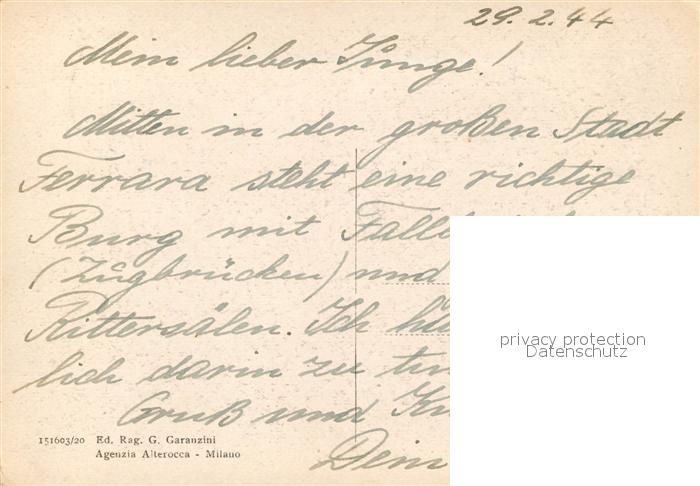 29. 2. 44
Mein lieber Junge!
Mitten in der großen Stadt
Ferrara steht eine richtige
Burg mit
(Zugbrücken) und
Rittersälen. Ich
lich darin zu
Gruß und
Dein
151603/20 Ed. Rag. G. Garanzini
Agenzia Alterocca - Milano
privacy protection
Datenschutz